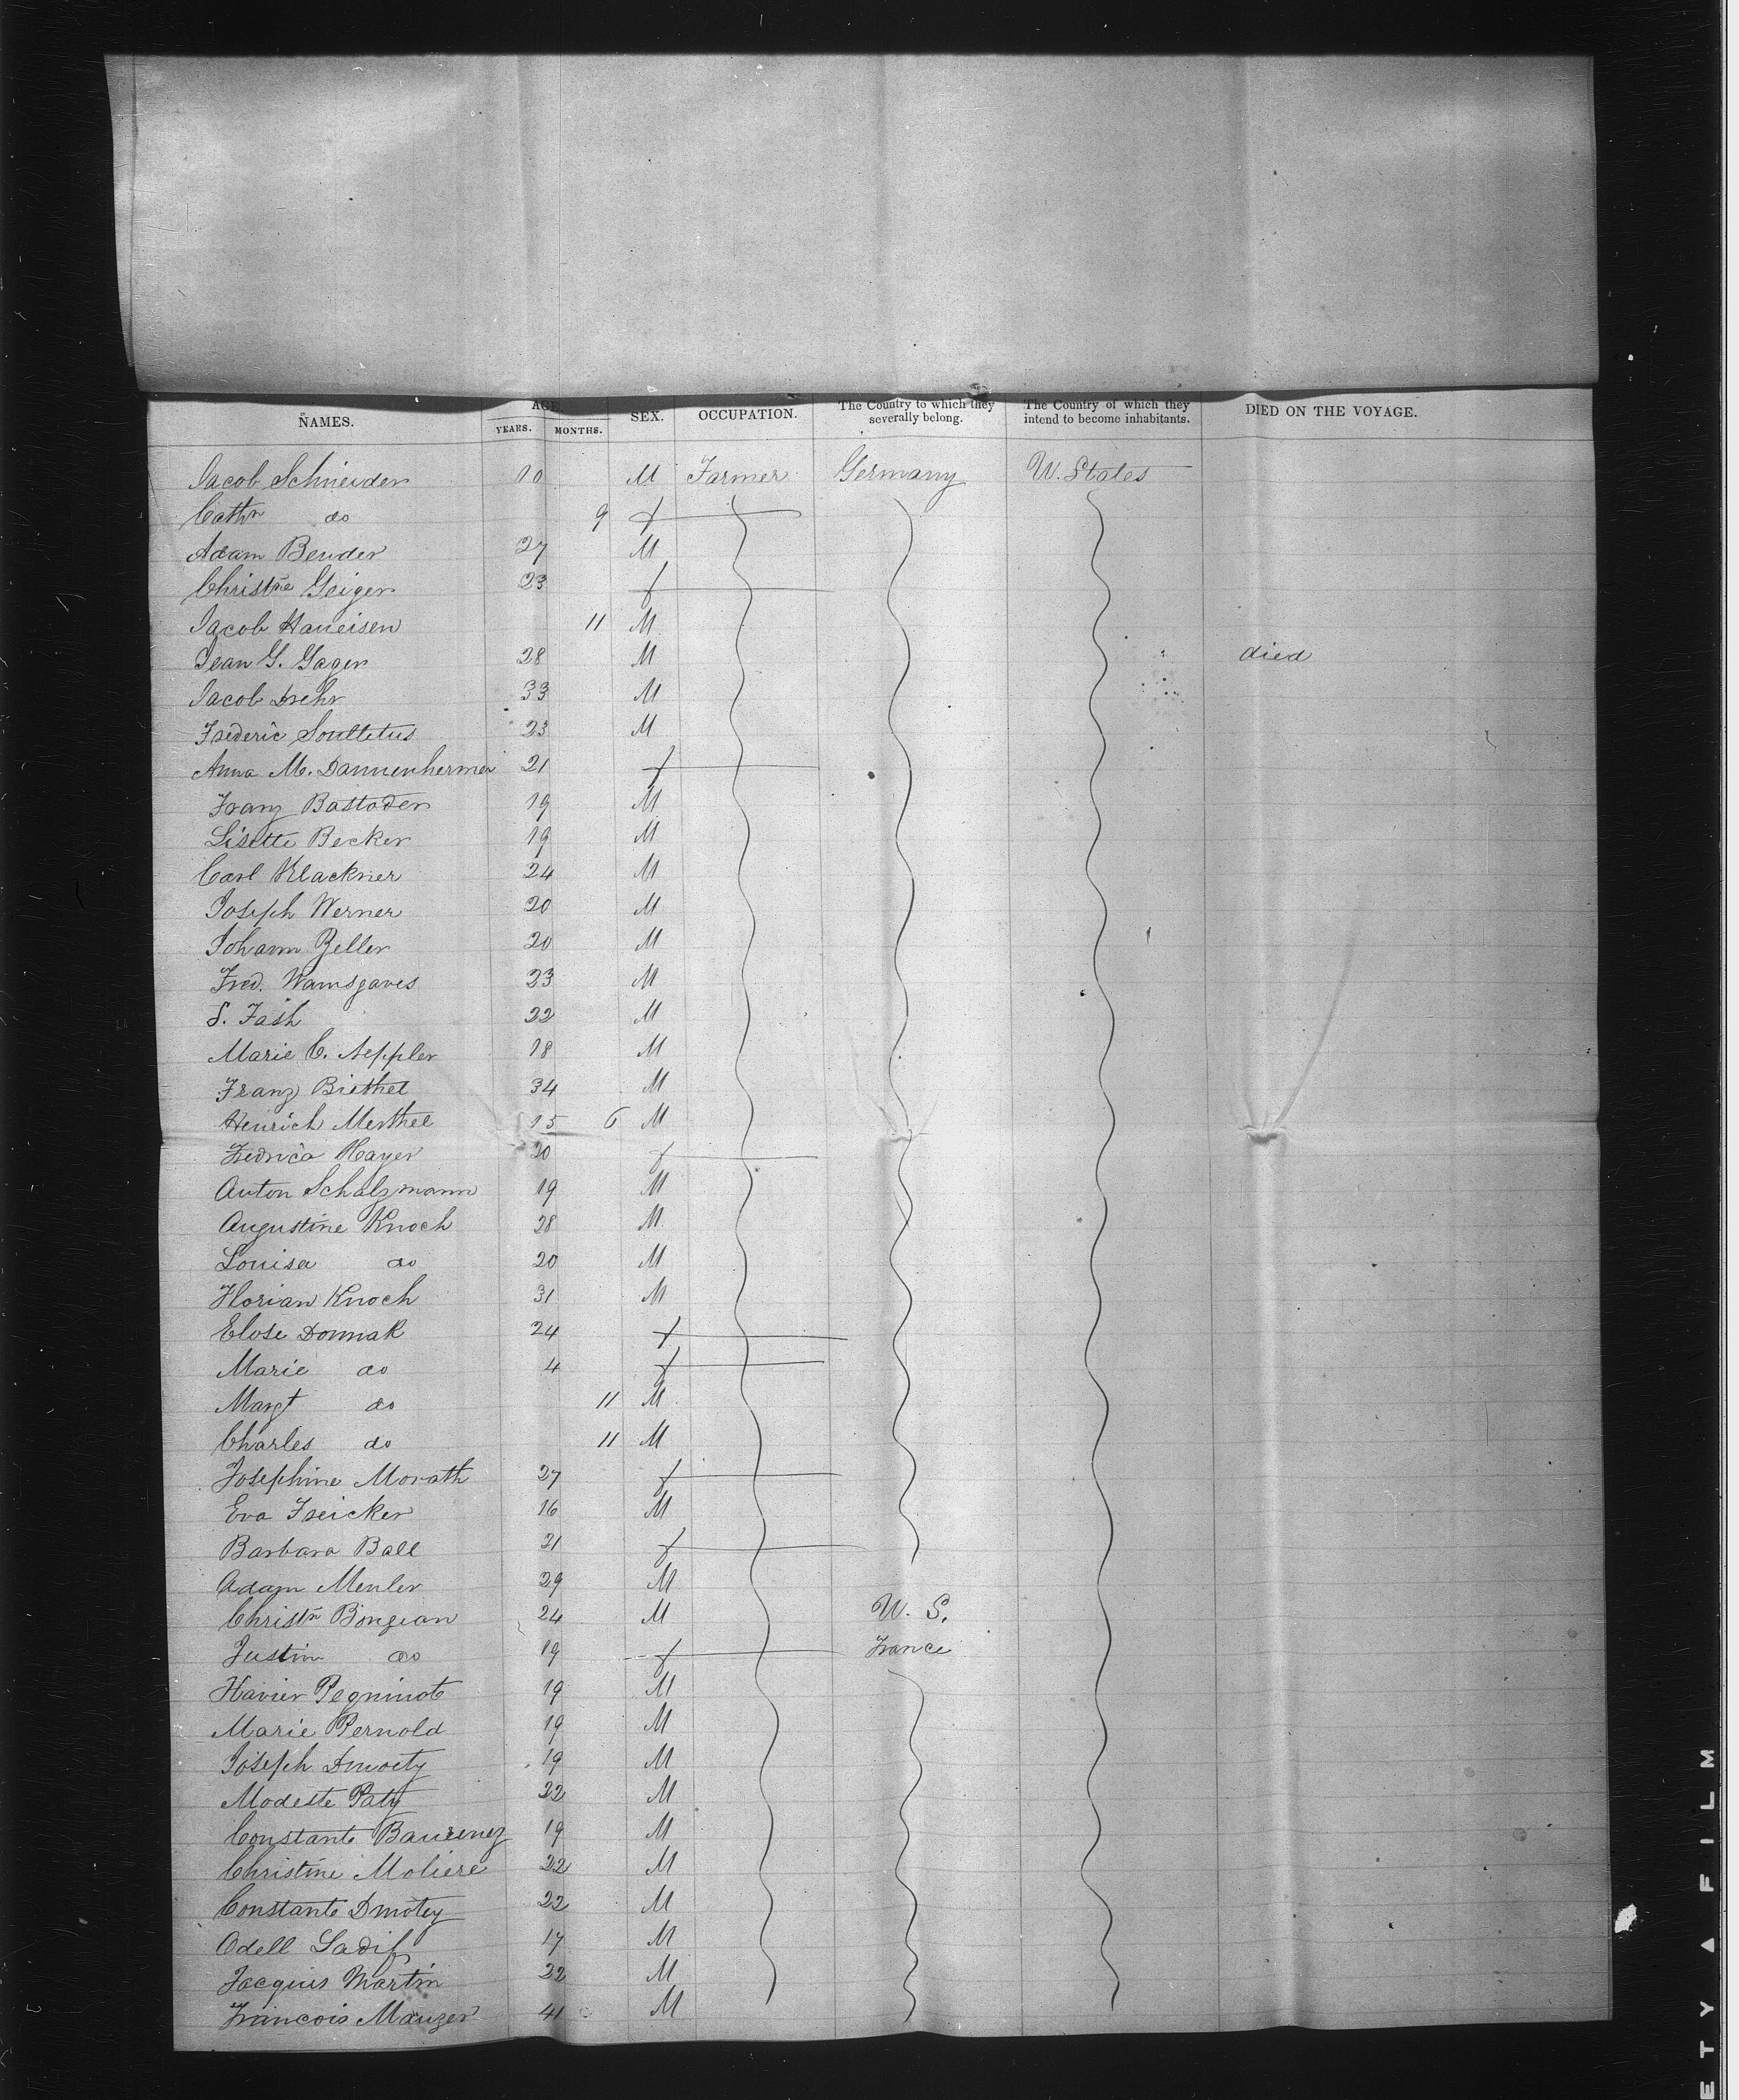 NAMES. AGE. YEARS. MONTHS. SEX. OCCUPATION. The Country to which they severally belong. The Country of which they intend to become inhabitants. DIED ON THE VOYAGE.
Jacob Schneider 10 M Farmer Germany U. States
Cathn do 9 f
Adam Bender 27 M
Christne Geiger 23 f
Jacob Haueisen 11 M
Jean G. Gager 28 M died
Jacob Drehr 33 M
Frederic Soultetus 23 M
Anna M. Dannenhermer 21 f
Franz Bastoder 19 M
Lisette Becker 19 M
Carl Klackner 24 M
Joseph Werner 20 M
Johann Zeller 20 M
Fred. Wamsgaves 23 M
S. Fash 22 M
Marie C. Aeppler 18 M
Franz Biethel 34 M
Henrich Merthel 15 6 M
Fredrica Hayer 20 f
Anton Schalzmann 19 M
Augustine Knoch 28 M
Louisa do 20 M
Florian Knoch 31 M
Elose Donnak 24 f
Marie do 4 f
Margt do 11 M
Charles do 11 M
Josephine Morath 27 f
Eva Freicker 16 M
Barbara Ball 21 f
Adam Menler 29 M
Christn Bongean 24 M U. S.
Justin do 19 f France
Havier Pegninot 19 M
Marie Pernold 19 M
Joseph Dmoity 19 M
Modeste Paty 22 M
Constante Baurenez 19 M
Christine Moliere 22 M
Constante Dmotey 22 M
Odell Ladif 17 M
Jacques Martin 22 M
Francois Mauzer 41 M
ETY ▲ FILM